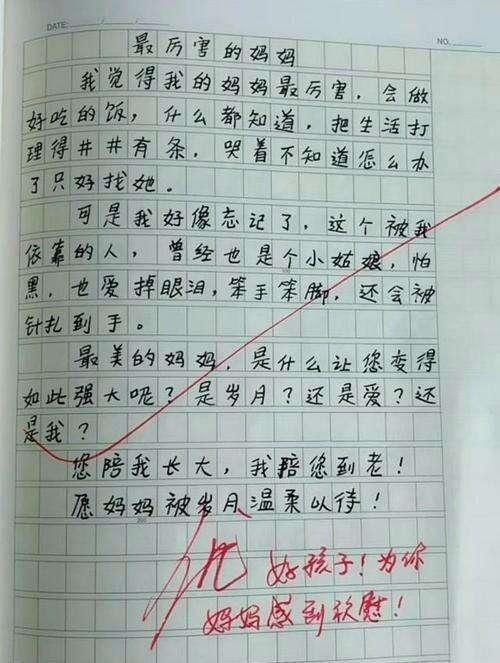 DATE:
NO.
最厉害的妈妈
我觉得我的妈妈最厉害，会做
好吃的饭，什么都知道，把生活打
理得井井有条，哭着不知道怎么办
了只好找她。
可是我好像忘记了，这个被我
依靠的人，曾经也是个小姑娘，怕
黑，也爱掉眼泪，笨手笨脚，还会被
针扎到手。
最美的妈妈，是什么让您变得
如此强大呢？是岁月？还是爱？还
是我？
您陪我长大，我陪您到老！
愿妈妈被岁月温柔以待！
优
好孩子！为你
妈妈感到欣慰！